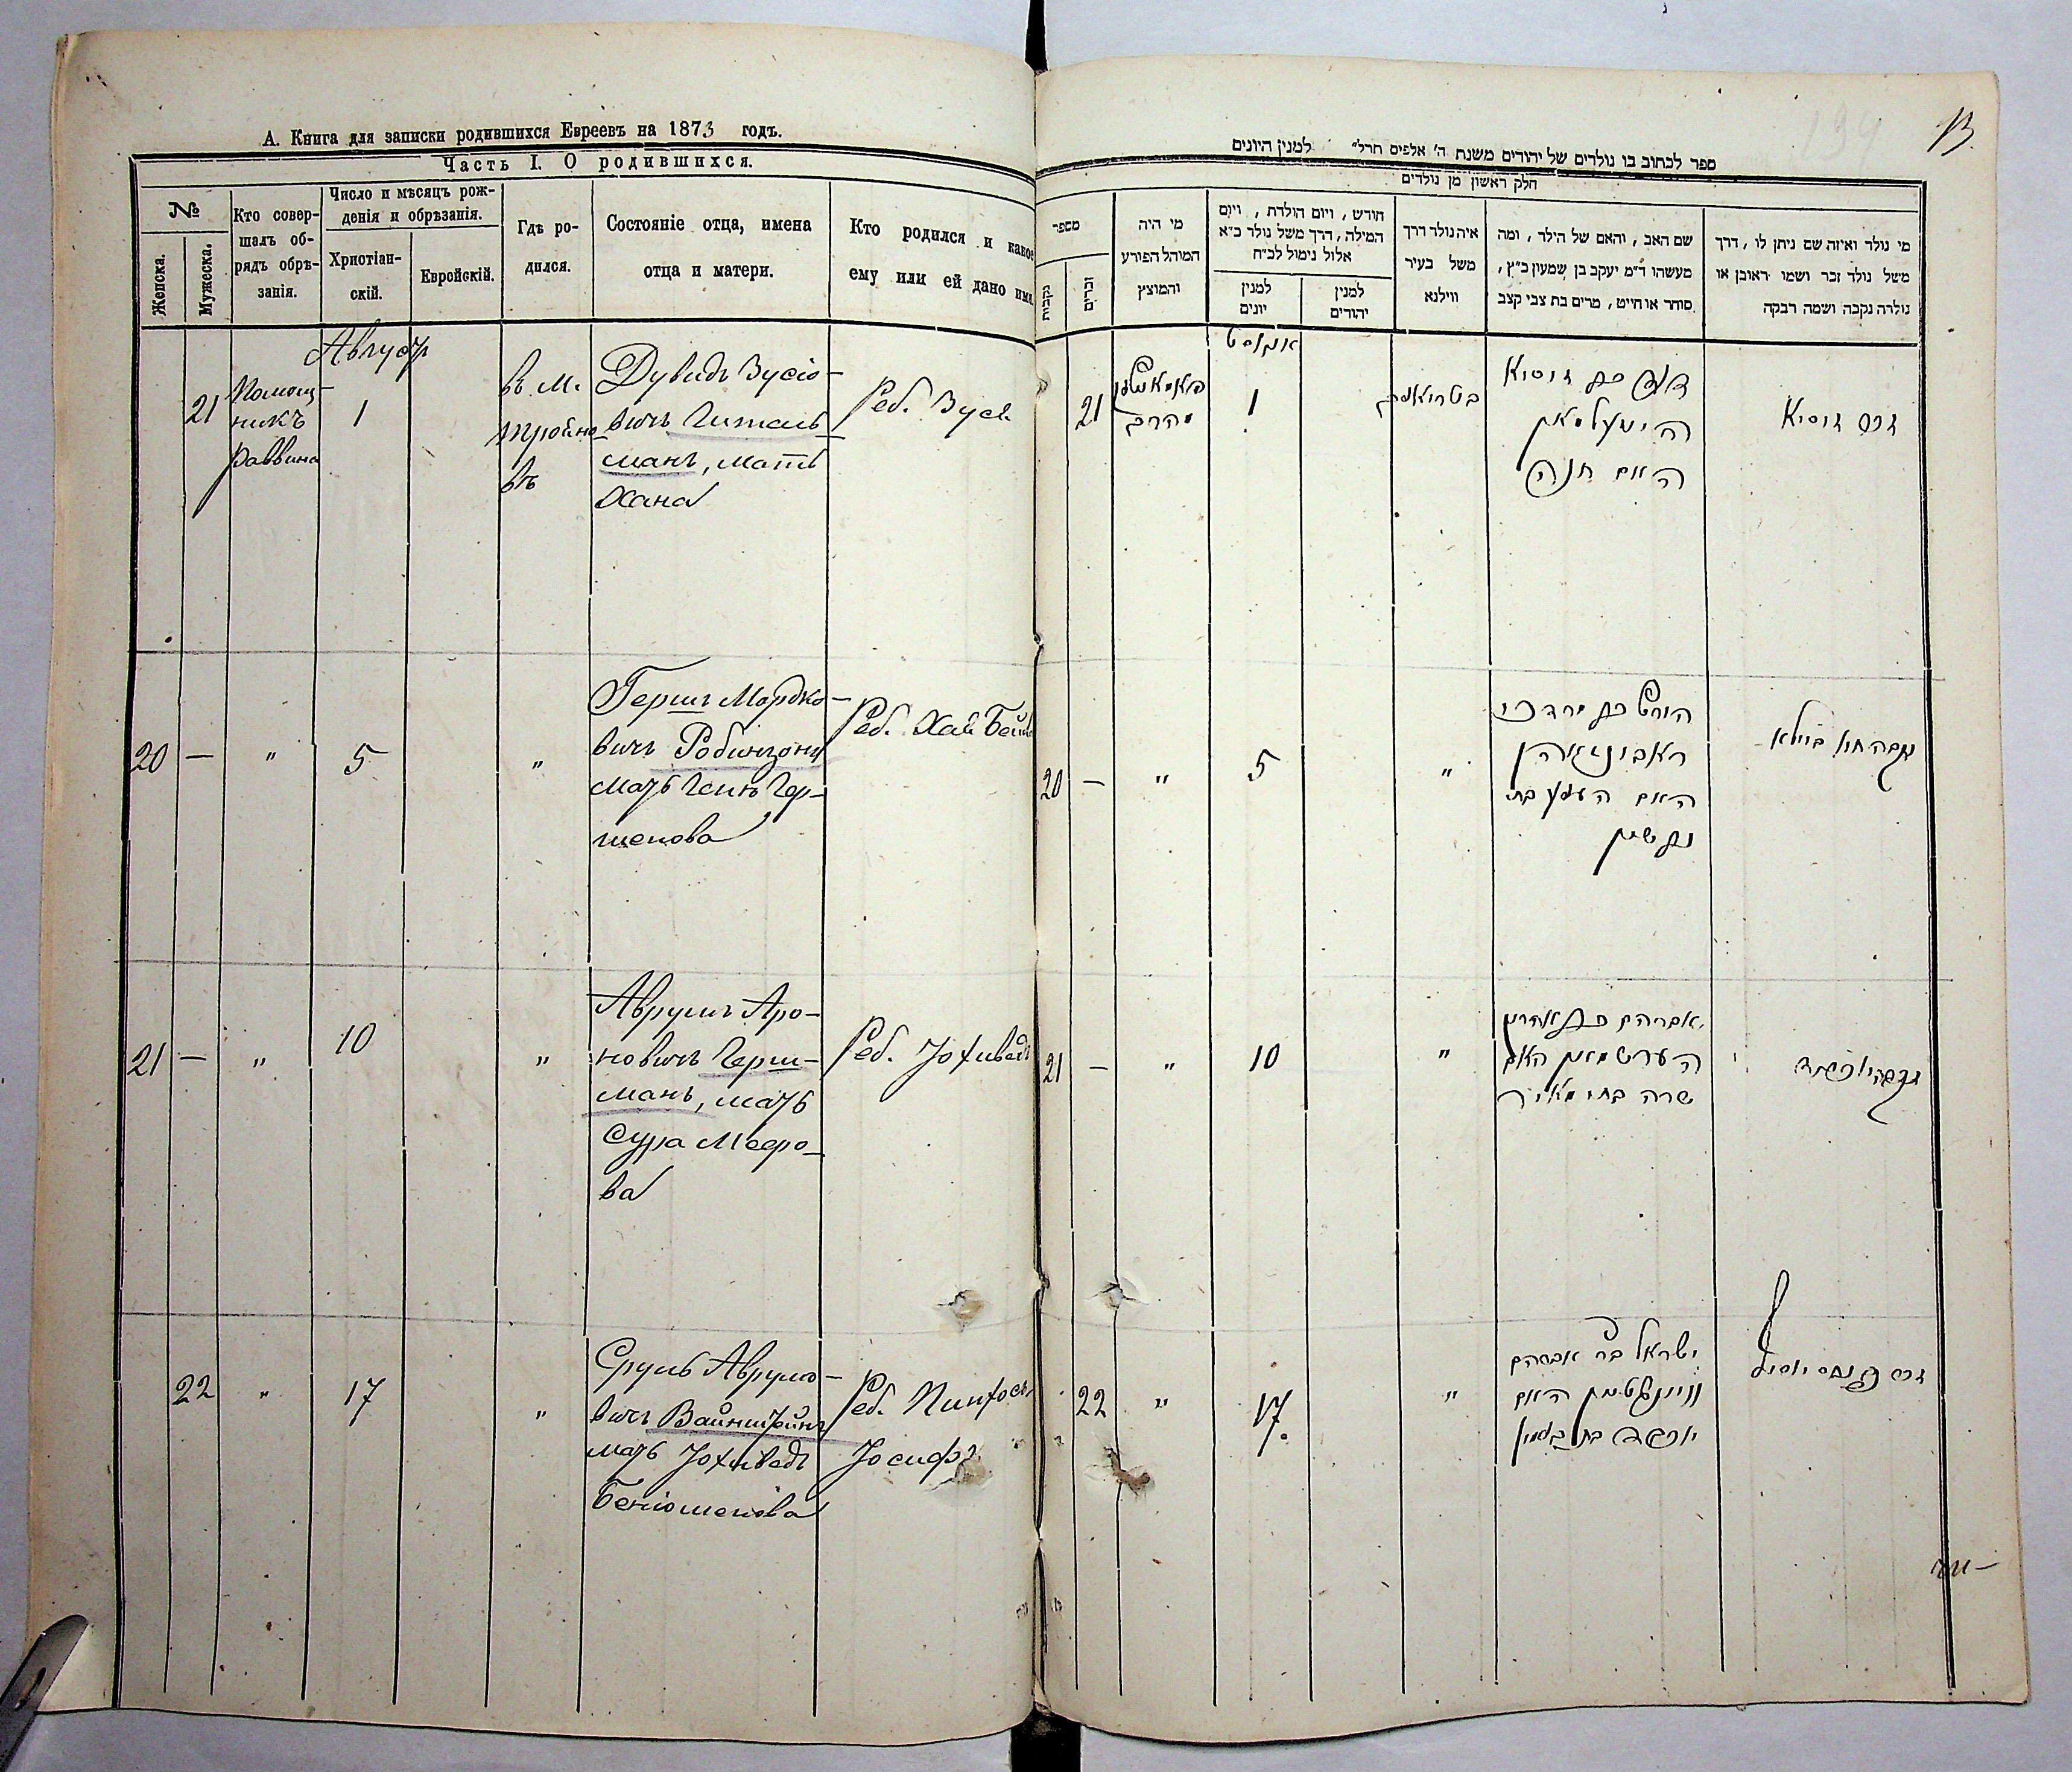 А. Книга для записки родившихся Евреевъ на 1873 годъ.
Часть I. О родившихся.
№
Женска.
Мужеска.
Кто совер-
шалъ об-
рядъ обрѣ-
занія.
Число и мѣсяцъ рож-
денія и обрѣзанія.
Христіан-
скій.
Еврейскій.
Гдѣ ро-
дился.
Состояніе отца, имена
отца и матери.
Кто родился и какое
ему или ей дано имя.
Августъ
21
Помощ-
никъ
раввина
1
въ м.
Дувидъ Зусіо-
вичъ Гитель-
манъ, мать
Хана
Реб. Зуся
20 — " 5 "
Гершъ Мордко-
вичъ Робинзонъ
мать Геня Гер-
шенова
Реб. Хая Бейла
21 — " 10 "
Аврумъ Аро-
новичъ Герш-
манъ, мать
Сура Мееро-
ва
Реб. Іохиведъ
22 " 17 "
Сруль Аврумо-
вичъ Вайнштейнъ
мать Іохиведъ
Беніоменова
Реб. Пинхосъ
Іосифъ
13
194
ספר לכתוב בו נולדים של יהודים משנת ה' אלפים תרל" למנין היונים
חלק ראשון מן נולדים
מספר
נקבות
זכרים
מי היה
המוהל הפורע
והמוצץ
חודש, ויום הולדת, ויום
המילה, דרך משל נולד כ"א
אלול נימול לכ"ח
למנין
יונים
למנין
יהודים
איה נולד דרך
משל בעיר
ווילנא
שם האב, והאם של הילד, ומה
מעשהו ד"מ יעקב בן שמעון כ"ץ,
סוחר או חייט, מרים בת צבי קצב.
מי נולד ואיזה שם ניתן לו, דרך
משל נולד זכר ושמו ראובן או
נולדה נקבה ושמה רבקה
אוגוסט
21
1
האם חנה
זכר זוסיא
20 — " 5 "
הירש בן מרדכי
ראבינזאהן
נקבה חיה ביילא
21 — " 10 "
אברהם בן אהרן
הערשמאן האם
שרה בת מאיר
נקבה יוכבד
22 " 17. "
ישראל בר אברהם
וויינשטיין האם
יוכבד בת בנימין
זכר פנחס יוסף